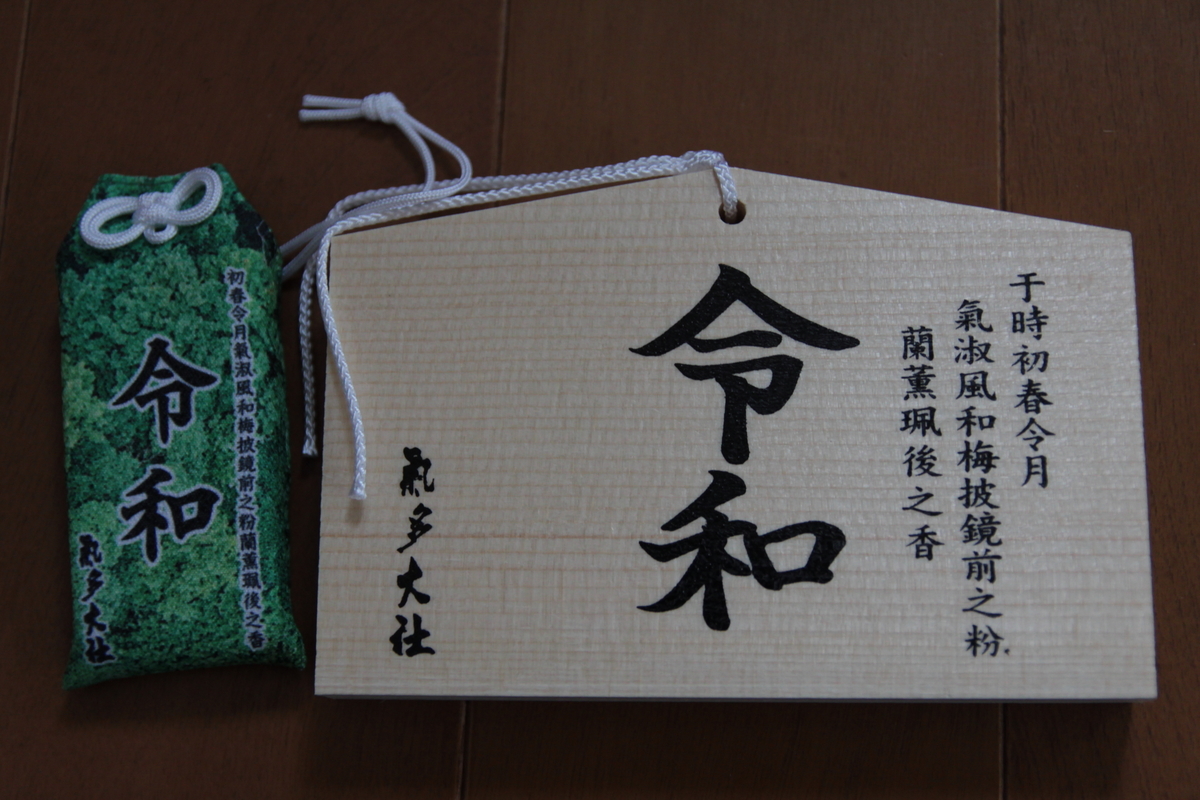 于時初春令月
氣淑風和梅披鏡前之粉
蘭薫珮後之香
令和
氣多大社
初春令月氣淑風和梅披鏡前之粉蘭薫珮後之香
令和
氣多大社